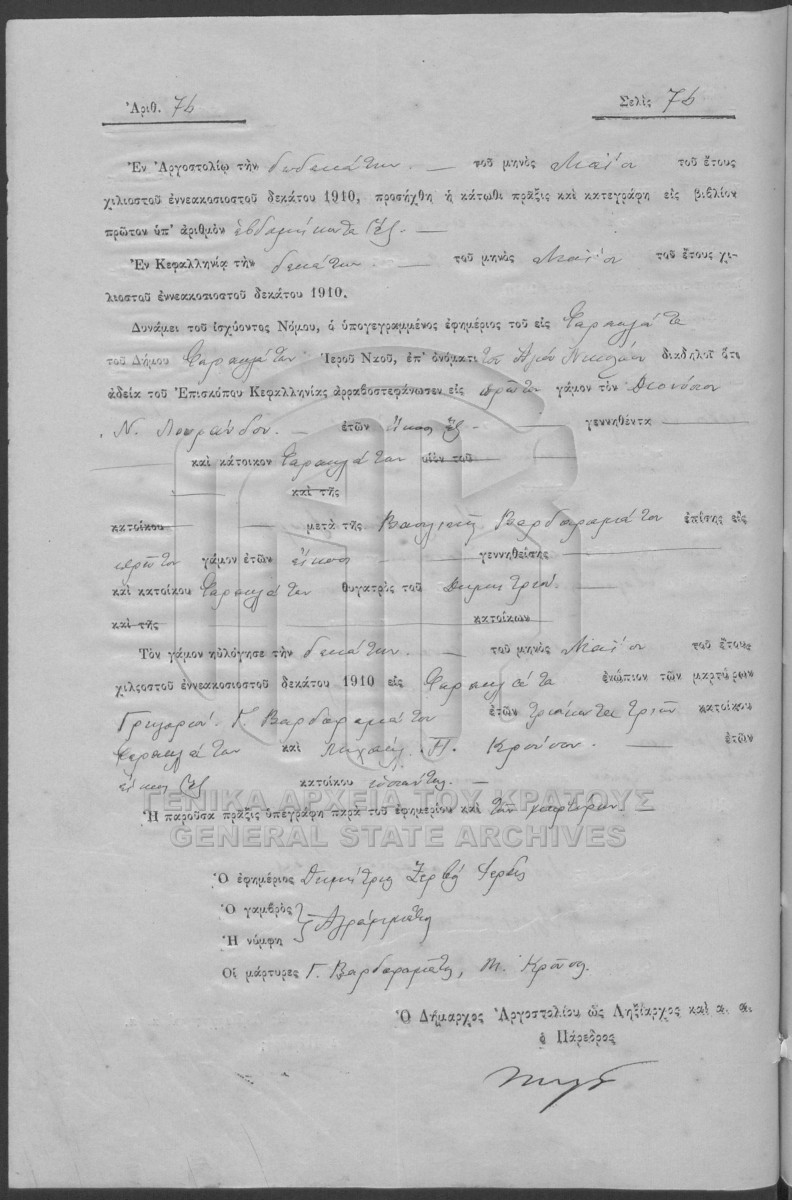 Ἀριθ. 76 Σελὶς 76
Ἐν Ἀργοστολίῳ τὴν δωδεκάτην τοῦ μηνὸς Μαΐου τοῦ ἔτους
χιλιοστοῦ ἐννεακοσιοστοῦ δεκάτου 1910, προσήχθη ἡ κάτωθι πρᾶξις καὶ κατεγράφη εἰς βιβλίον
πρῶτον ὑπ' ἀριθμὸν ἑβδομήκοντα ἕξ. —
Ἐν Κεφαλληνίᾳ τὴν δεκάτην τοῦ μηνὸς Μαΐου τοῦ ἔτους χι-
λιοστοῦ ἐννεακοσιοστοῦ δεκάτου 1910.
Δυνάμει τοῦ ἰσχύοντος Νόμου, ὁ ὑπογεγραμμένος ἐφημέριος τοῦ εἰς Φαρακλάτα
τοῦ Δήμου Φαρακλάτων Ἱεροῦ Ναοῦ, ἐπ' ὀνόματι τοῦ Ἁγίου Νικολάου διαδηλοῖ ὅτι
ἀδείᾳ τοῦ Ἐπισκόπου Κεφαλληνίας ἀρραβοστεφάνωσεν εἰς πρῶτον γάμον τὸν Διονύσιον
Ν. ἐτῶν εἴκοσι ἕξ. — γεννηθέντα
καὶ κάτοικον Φαρακλάτων υἱὸν τοῦ
καὶ τῆς
κατοίκου μετὰ τῆς Βασιλικῆς Βαρδαραμάτου ἐπίσης εἰς
πρῶτον γάμον ἐτῶν εἴκοσι γεννηθείσης
καὶ κατοίκου Φαρακλάτων θυγατρὸς τοῦ Δημητρίου.
καὶ τῆς κατοίκων
Τὸν γάμον ηὐλόγησε τὴν δεκάτην. τοῦ μηνὸς Μαΐου τοῦ ἔτους
χιλςοστοῦ ἐννεακοσιοστοῦ δεκάτου 1910 εἰς Φαρακλάτα ἐνώπιον τῶν μαρτύρων
Γρηγορίου Γ. Βαρδαραμάτου ἐτῶν τριάκοντα τριῶν κατοίκου
Φαρακλάτων καὶ Μιχαὴλ Π. Κρούσου. — ἐτῶν
εἴκοσι ἕξ κατοίκου ὡσαύτως. —
ΓΕΝΙΚΑ ΑΡΧΕΙΑ ΤΟΥ ΚΡΑΤΟΥΣ
Ἡ παροῦσα πρᾶξις ὑπεγράφη παρὰ τοῦ ἐφημερίου καὶ τῶν μαρτύρων. —
GENERAL STATE ARCHIVES
Ὁ ἐφημέριος Δημήτριος Ζερβὸς
Ὁ γαμβρὸς
Ἀγράμματοι
Ἡ νύμφη
Οἱ μάρτυρες Γ. Βαρδαραμάτος, Μ. Κροῦσος.
Ὁ Δήμαρχος Ἀργοστολίου ὡς Ληξίαρχος καὶ α. α.
ὁ Πάρεδρος